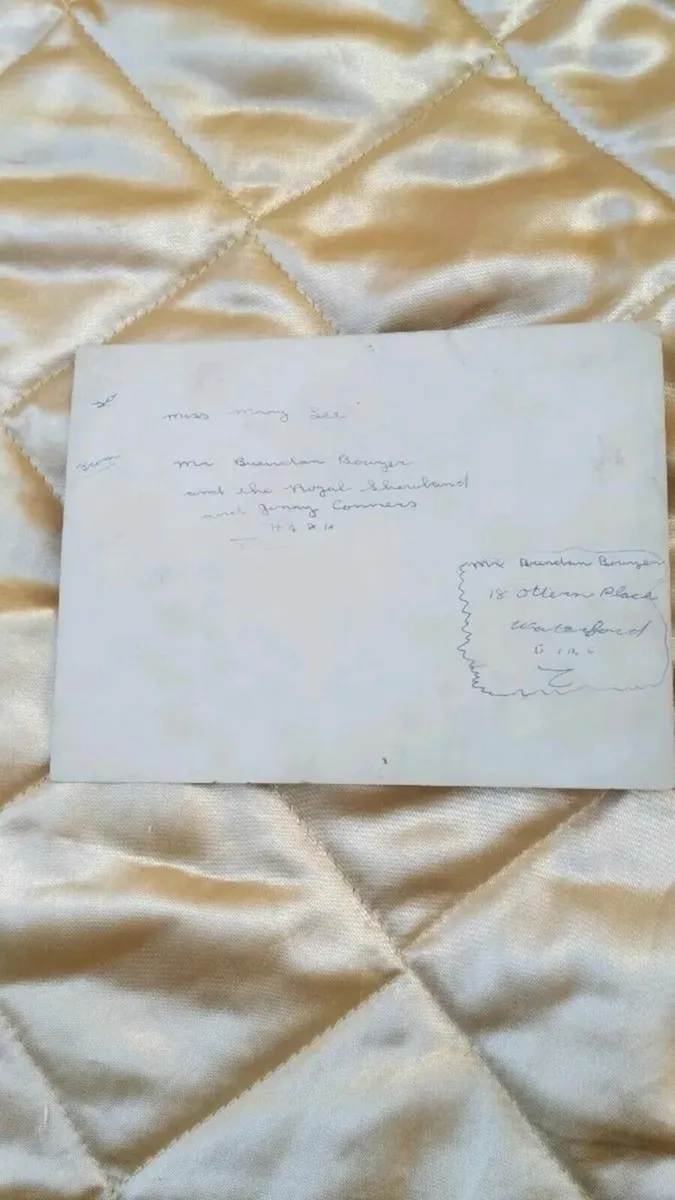 to
miss mary Lee
from
mr Brendan Bowyer
and the Royal Showband
and Jonny Conners
mr Brendan Bowyer
18 Ottern Place
Waterford